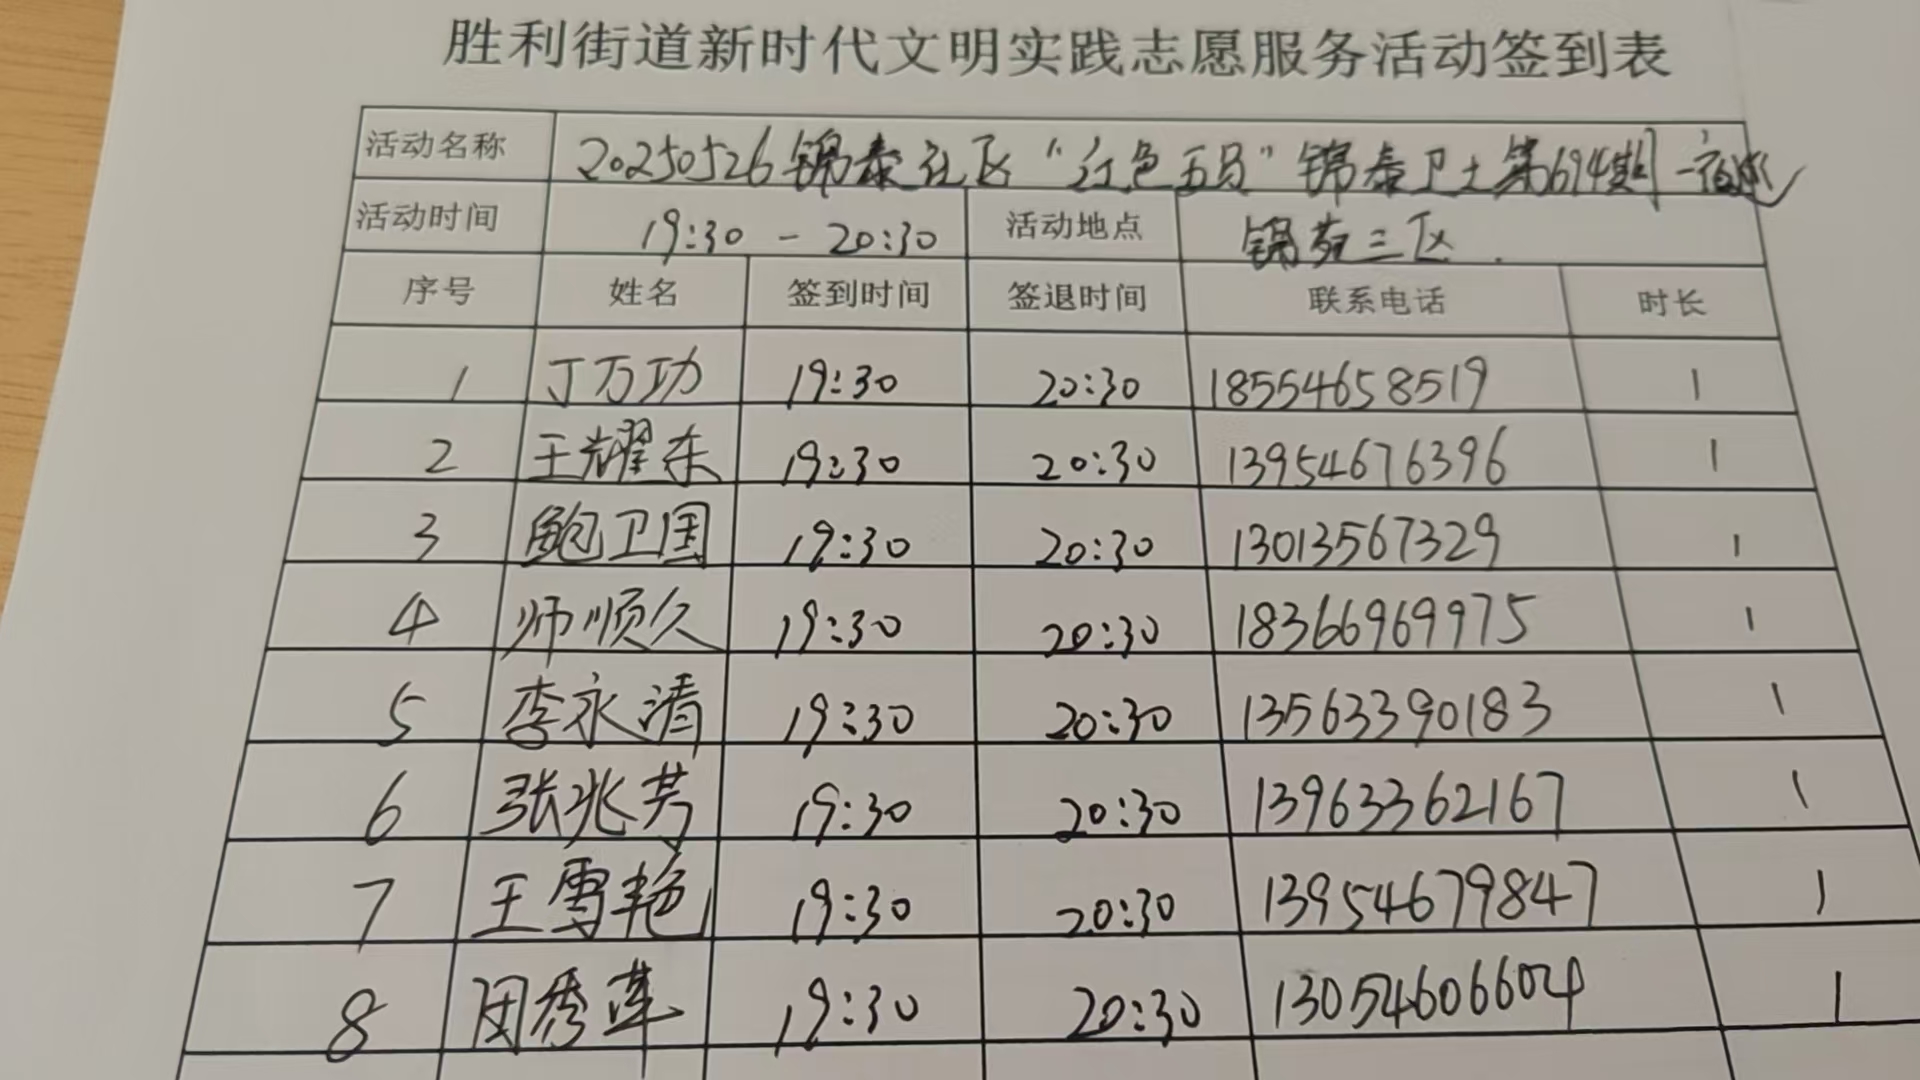 胜利街道新时代文明实践志愿服务活动签到表
活动名称 20250526锦泰社区“红色五员”锦泰卫士第694期—夜巡
活动时间 19:30 - 20:30 活动地点 锦苑三区
序号 姓名 签到时间 签退时间 联系电话 时长
1 丁万功 19:30 20:30 18554658519 1
2 王耀东 19:30 20:30 13954676396 1
3 鲍卫国 19:30 20:30 13013567329 1
4 师顺久 19:30 20:30 18366969975 1
5 李永清 19:30 20:30 13563390183 1
6 张兆芳 19:30 20:30 13963362167 1
7 王雪艳 19:30 20:30 13954679847 1
8 闵秀莲 19:30 20:30 13054606604 1